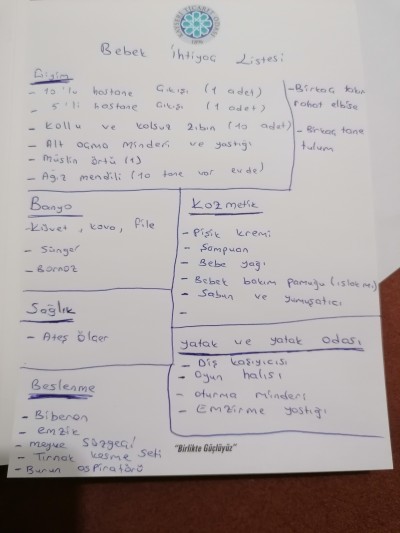 Bebek İhtiyaç Listesi
Giyim
- 10'lu hastane Çıkışı (1 adet)
- 5'li hastane Çıkışı (1 adet)
- Kollu ve kolsuz zıbın (10 adet)
- Alt açma minderi ve yastığı
- Müslin örtü (1)
- Ağız mendili (10 tane var evde)
- Birkaç takım
rahat elbise
- Birkaç tane
tulum
Banyo
- Küvet, kova, file
- Sünger
- Bornoz
Kozmetik
- Pişik kremi
- Şampuan
- Bebe yağı
- Bebek bakım pamuğu
- Sabun ve yumuşatıcı
-
Sağlık
- Ateş Ölçer
Yatak ve yatak odası
- Diş kaşıyıcısı
- Oyun halısı
- Oturma minderi
- Emzirme yastığı
Beslenme
- Biberon
- emzik
- meyve süzgeci
- Tırnak kesme seti
- Burun aspiratörü
"Birlikte Güçlüyüz"